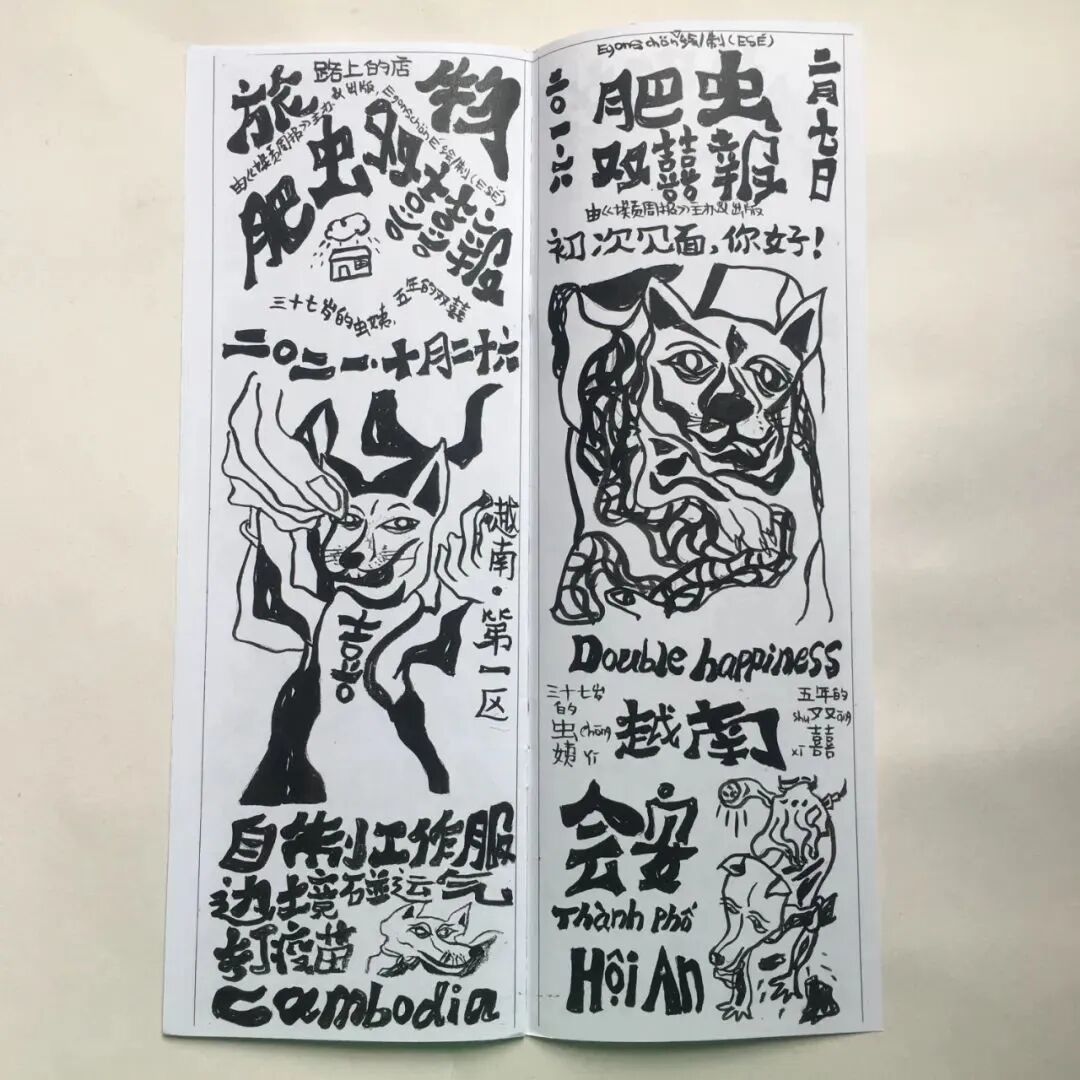 路上的店
旅物
由《燥员周报》主办&出版, Egongchong绘/制(ESE)
肥虫双囍報
三十七岁的虫姨,五年的双囍
二〇二一·十月二十六
越南·第一区
自制工作服
边境碰运气
打疫苗
Cambodia
Egongchong绘/制(ESE)
肥虫
双囍報
二月七日
主办&出版
初次见面,你好!
Double happiness
三十七岁的虫chóng姨yí
越南
五年的shu双āng囍xǐ
会安
Thành Phố
Hội An